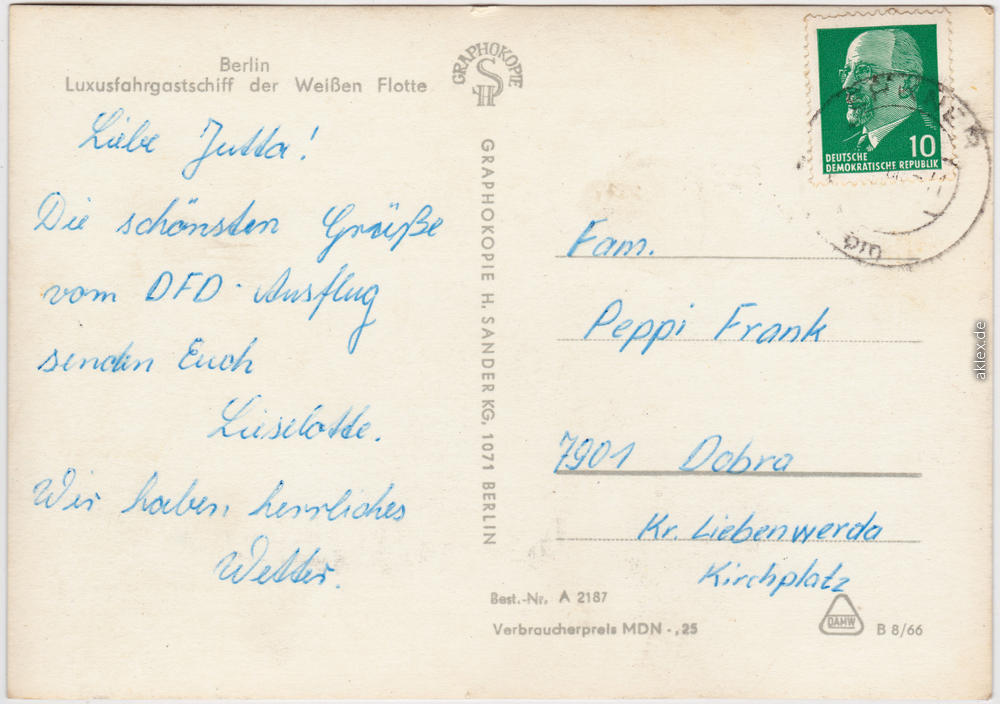 Berlin
Luxusfahrgastschiff der Weißen Flotte
Liebe Jutta!
Die schönsten Grüße
vom DFD-Ausflug
senden Euch
Lieselotte.
Wir haben herrliches
Wetter.
GRAPHOKOPIE
SH
GRAPHOKOPIE H. SANDER KG, 1071 BERLIN
10
DEUTSCHE
DEMOKRATISCHE REPUBLIK
Fam.
Peppi Frank
7901 Dobra
Kr. Liebenwerda
Kirchplatz
Best.-Nr. A 2187
Verbraucherpreis MDN -,25
DAMW
B 8/66
aklex.de